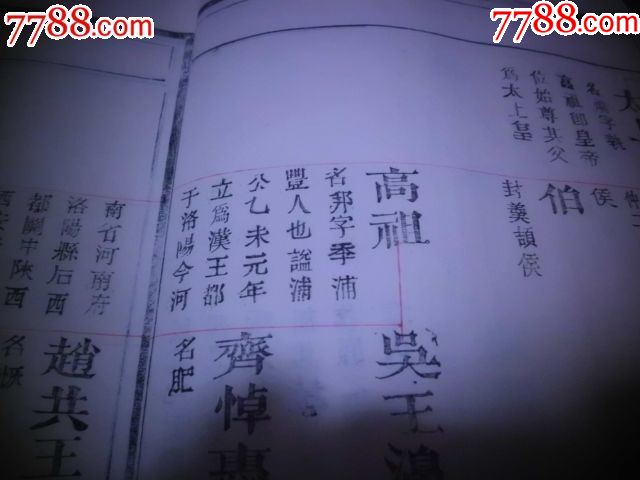 7788.com
7788.com
7788.com
太
名
高祖卽皇帝
位始尊其父
爲太上皇
伯
侯
封羹頡侯
高祖
名邦字季沛
豐人也謚沛
公乙未元年
立爲漢王都
于洛陽今河
南省河南府
洛陽縣后西
都關中陝西
西安
吳王
齊悼惠
名肥
趙共王
名恢